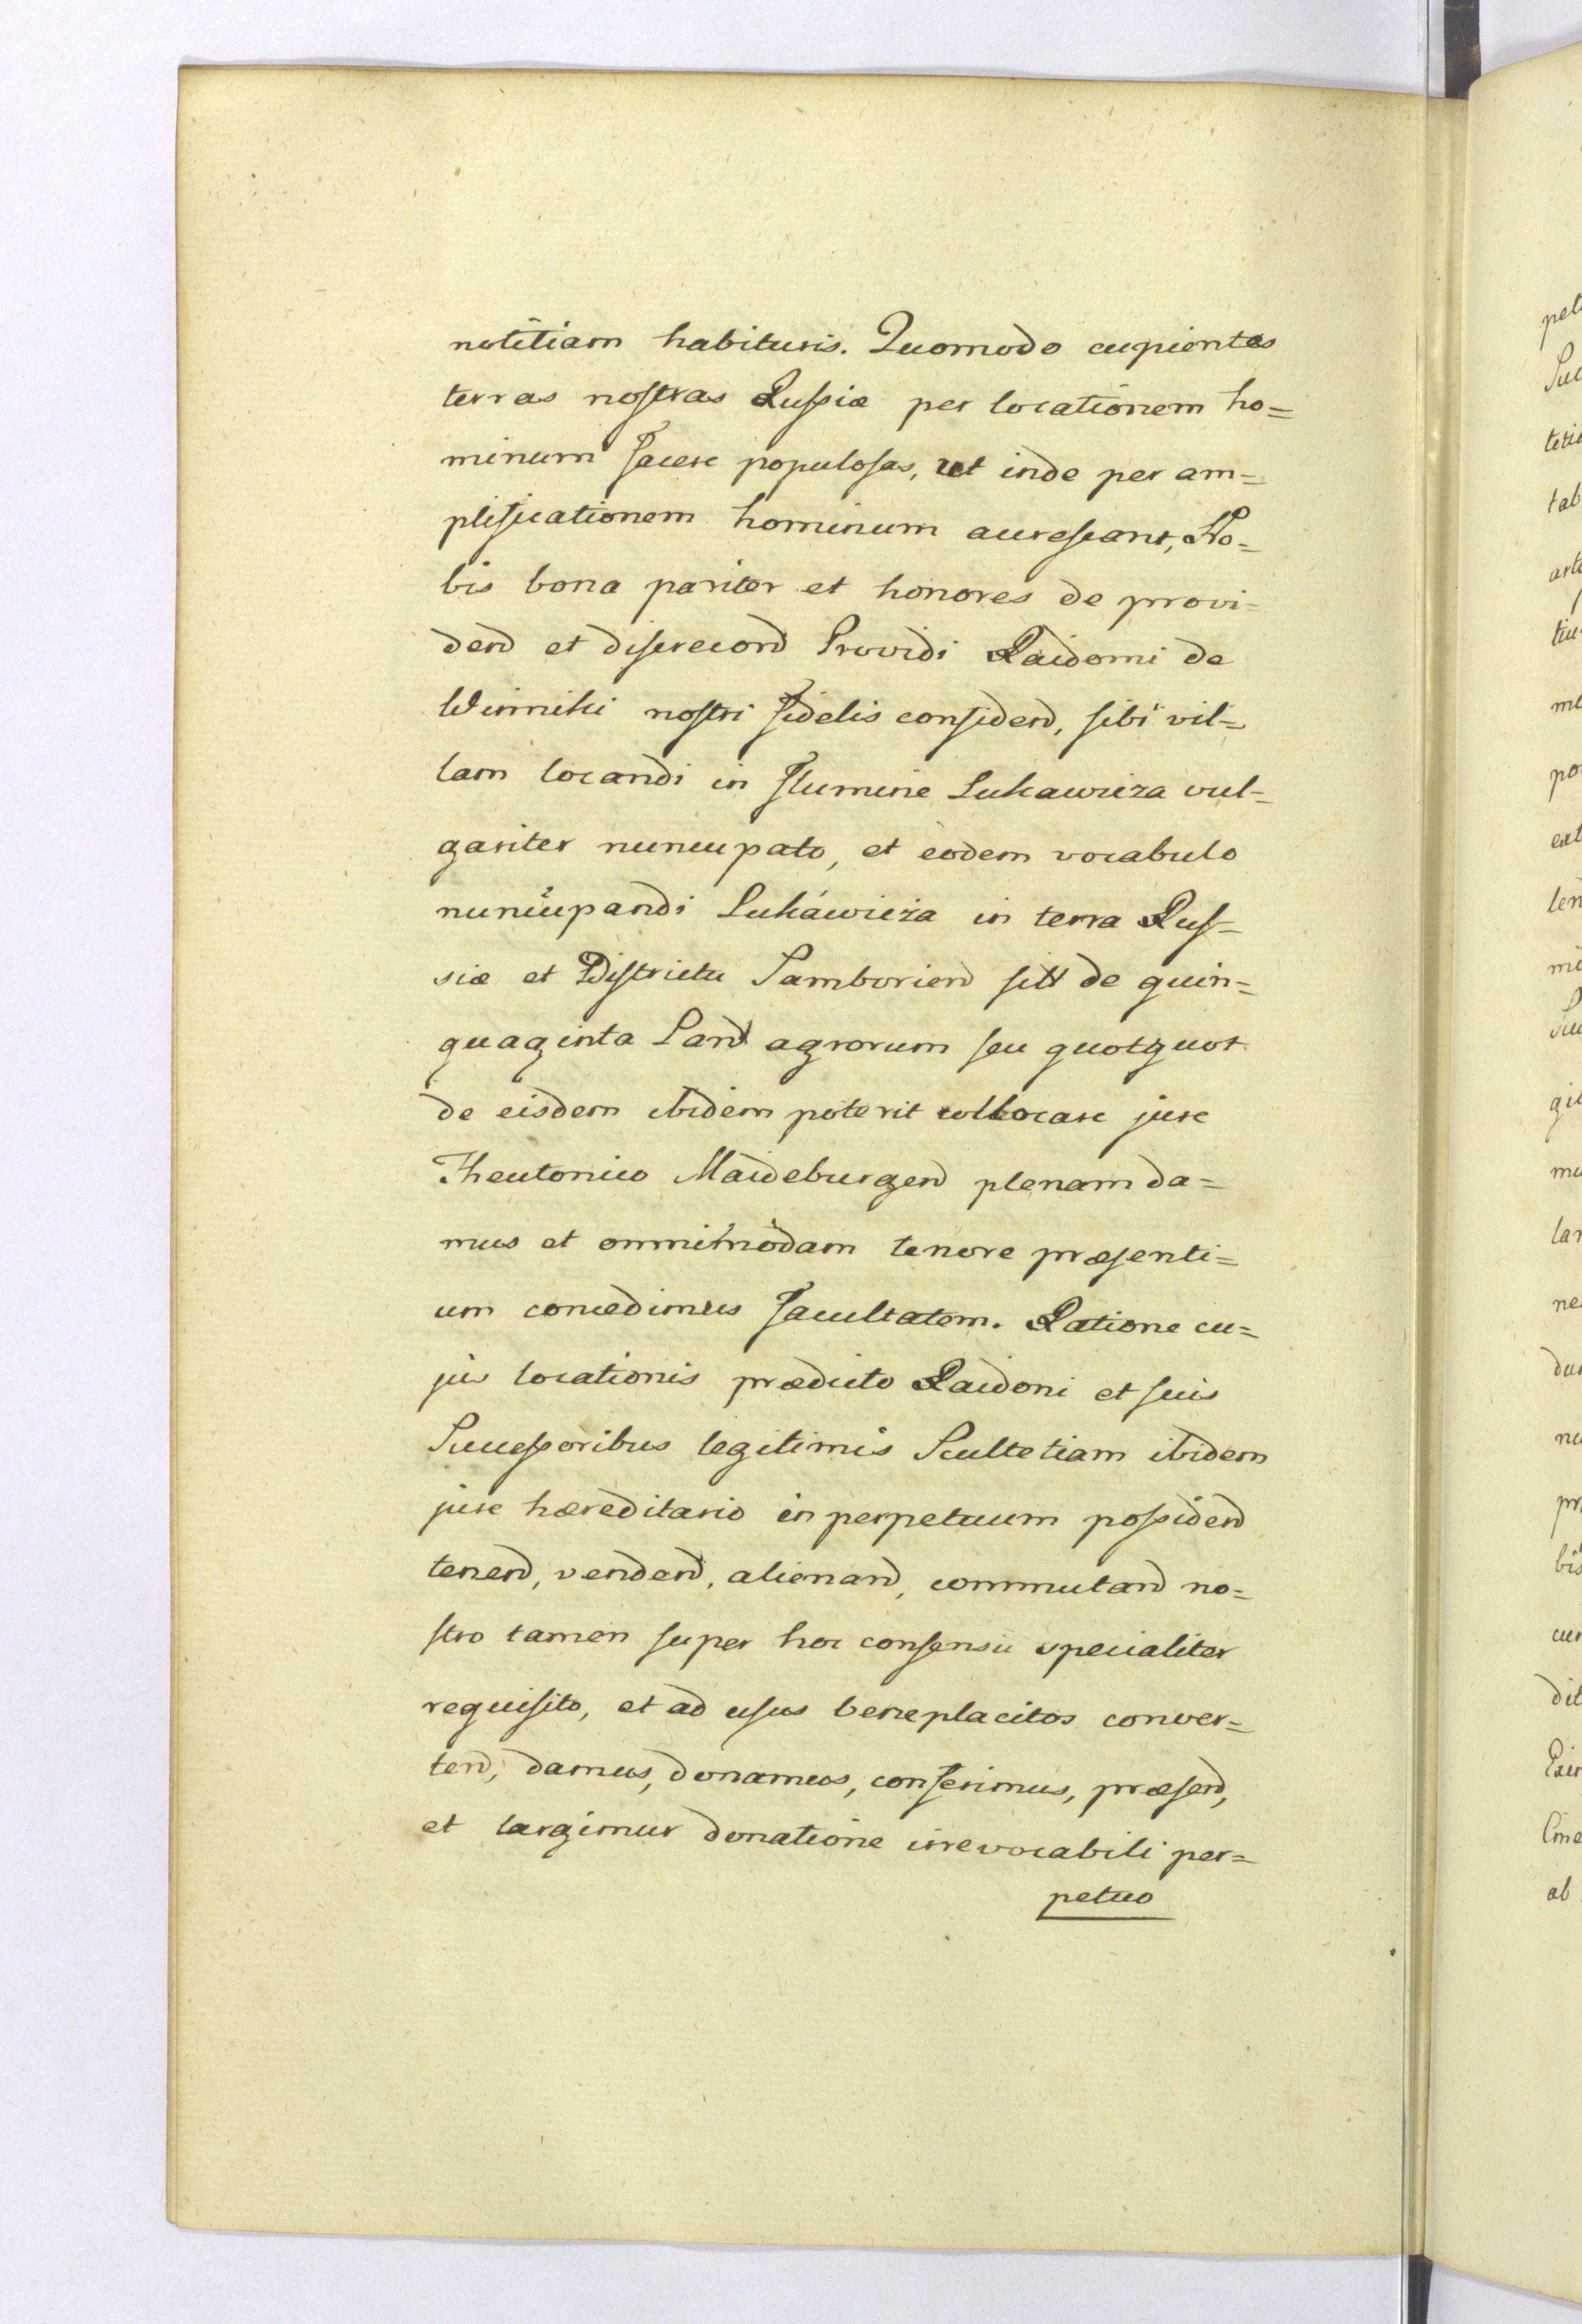 notitiam habituris. Quomodo cupientes
terras nostras Russiæ per locationem ho=
minum facere populosas, ut inde per am=
plificationem hominum accrescant, No=
bis bona pariter et honores de provi=
den et discrecion Providi Raidomi de
Winniki nostri fidelis confiden, sibi vil=
lam locandi in flumine Lukawieza vul=
gariter nuncupato, et eodem vocabulo
nuncupandi Lukawieża in terra Rus=
siæ et Districtu Samborien sitt de quin=
quaginta Lan agrorum seu quotquot
de eisdem ibidem poterit collocare jure
Theutonico Maideburgen plenam da=
mus et omnimodam tenore præsenti=
um concedimus facultatem. Ratione cu=
jus locationis prædicto Raidoni et suis
Successoribus legitimis Scultetiam ibidem
jure hæreditario in perpetuum possiden
tenen, venden, alienan, commutan no=
stro tamen super hoc consensu specialiter
requisito, et ad usus beneplacitos conver=
ten, damus, donamus, conferimus, præsen,
et largimur donatione irrevocabili per=
petuo
pet
Suc
teti
tab
arti
tiu
me
po
ext
len
mo
Su
gil
mo
lar
ne
du
nu
pr
bis
cur
dit
Exi
Cme
ab